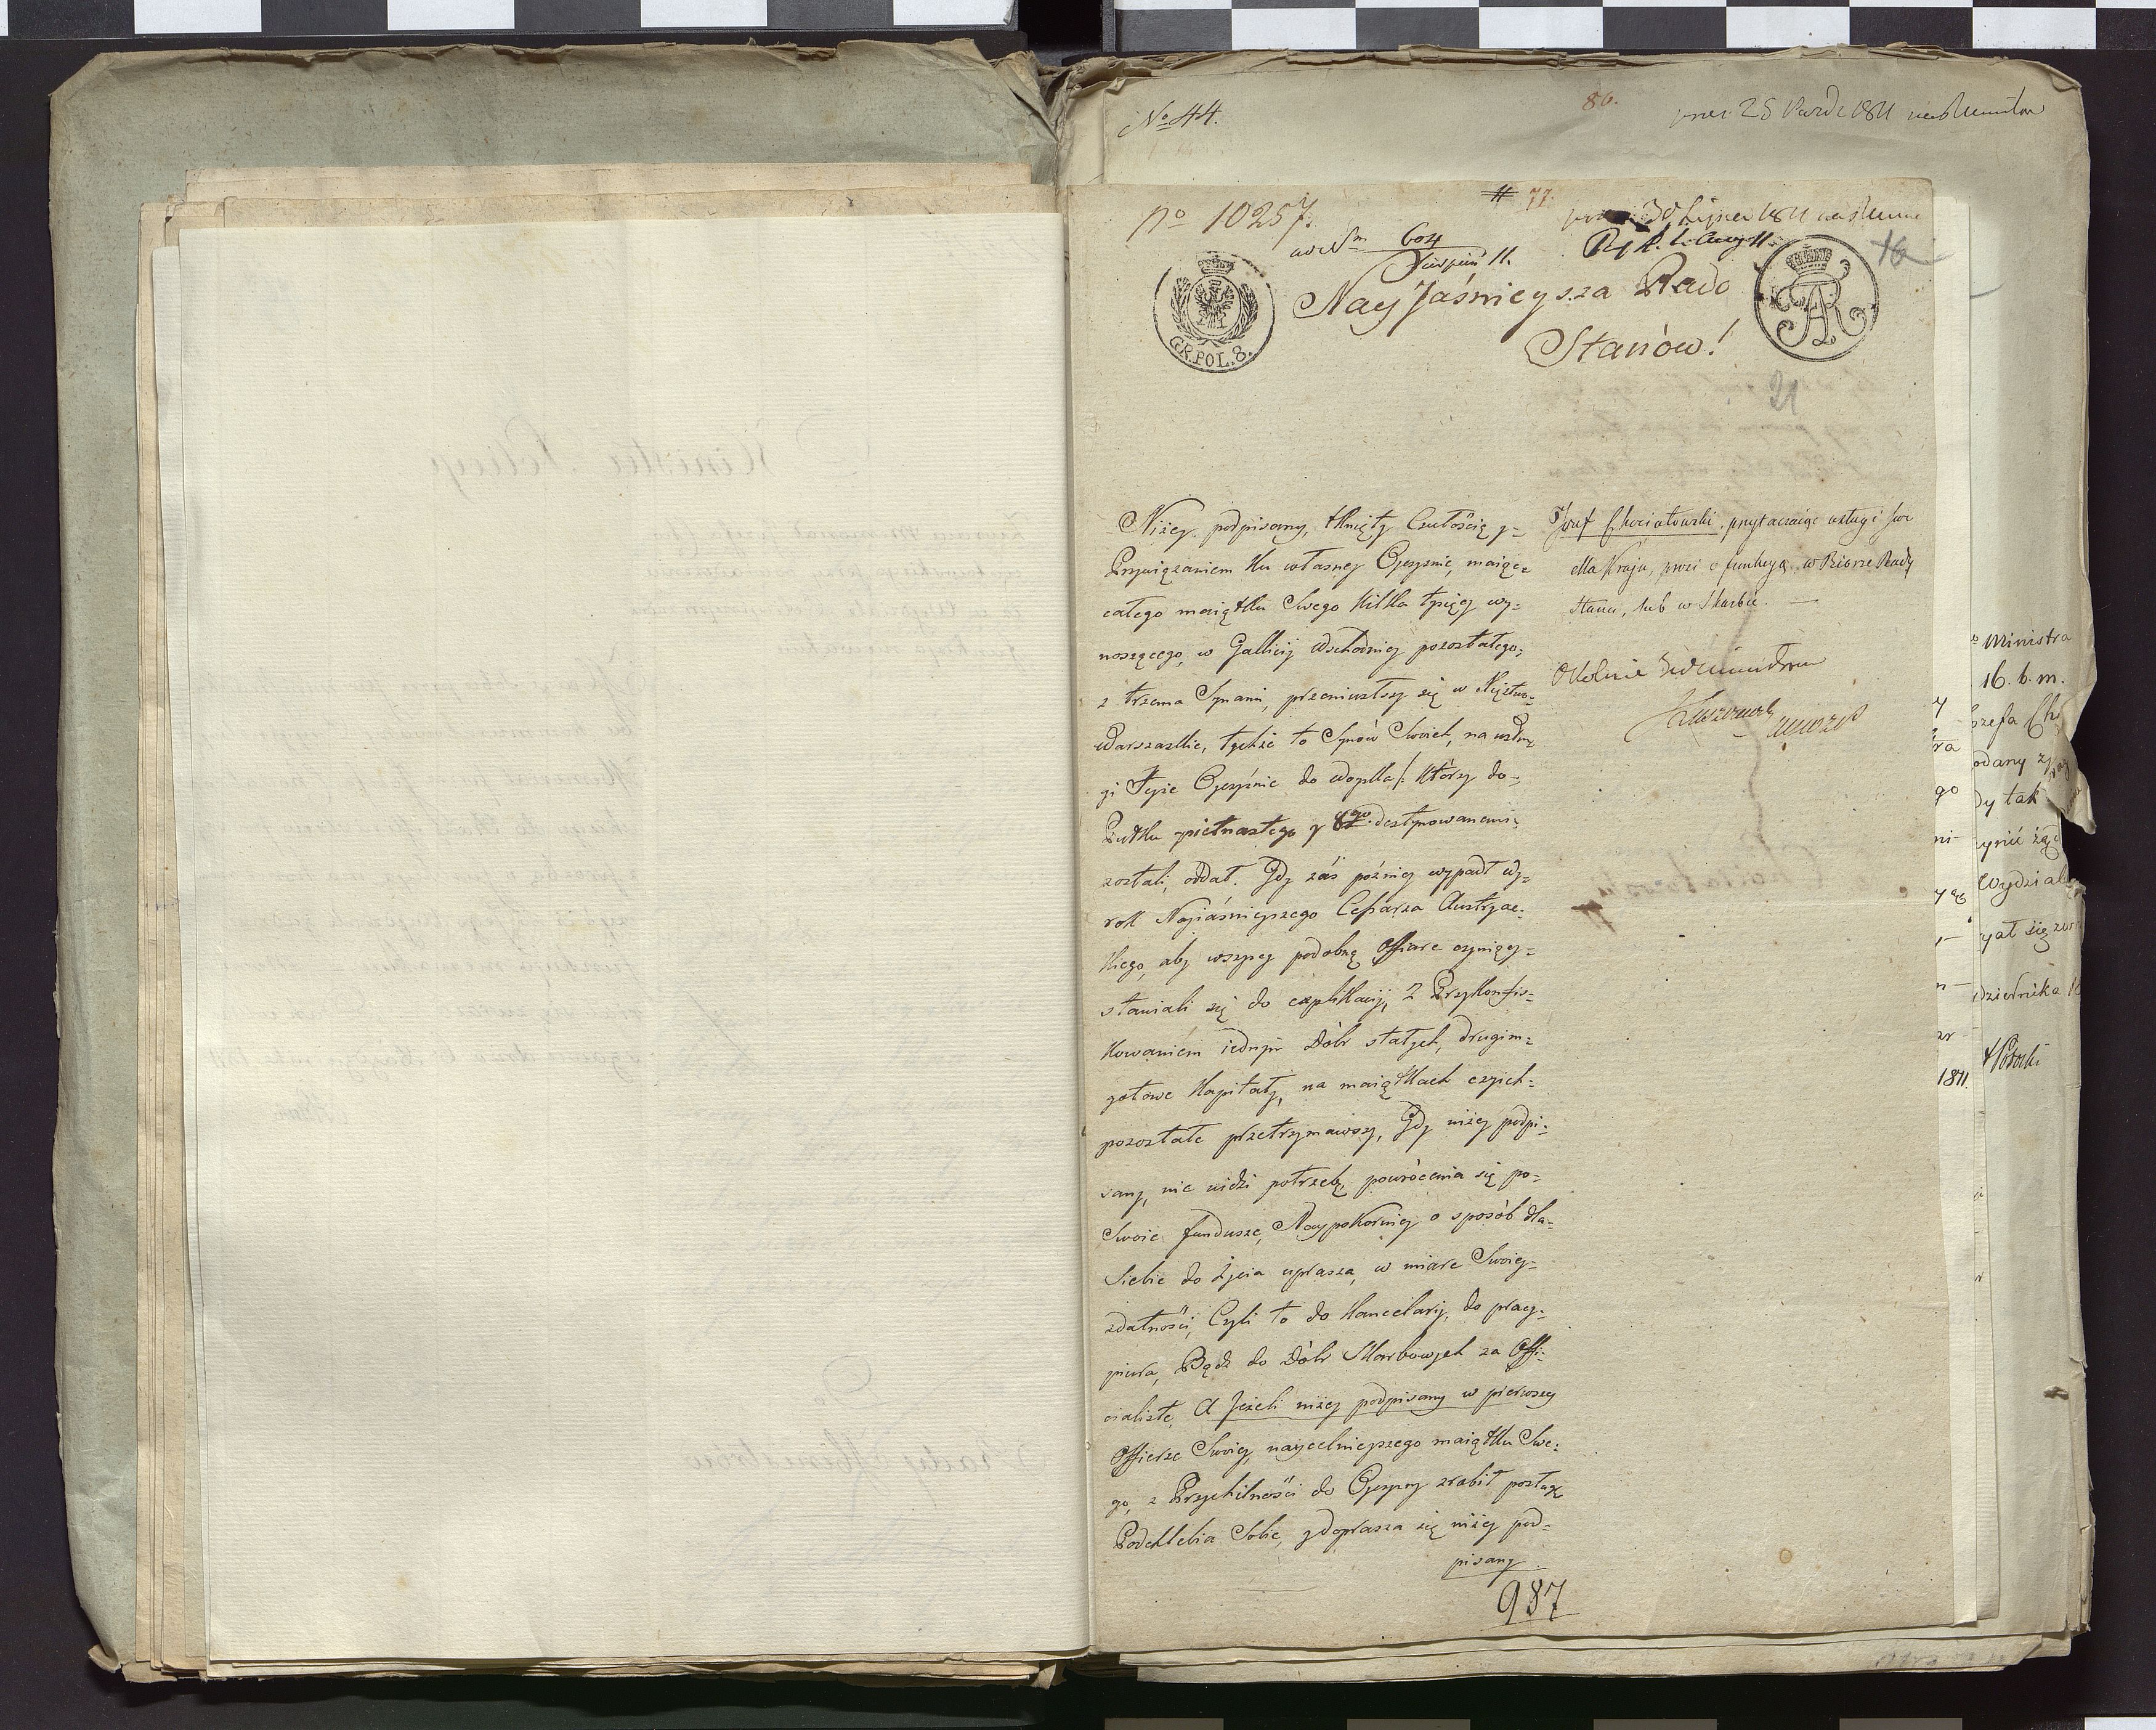 No 44.
86.
25 Paźdz 1811
No 10257.
77.
30 Lipca 1811
604
Sierpnia 11.
16
GR.POL.8.
Nay Jaśnieysza Rado
Stanów!
21
Niżey podpisany, tknięty Czułością y=
Przywiązaniem ku własney Oyczyznie, maiąc=
całego maiątku Swego kilka tysięcy wy=
noszącego, w Gallicij Wschodniey pozostałego,
z trzema Synami, przeniosłszy się w Xięstwo=
Warszawskie, tychże to Synów Swoich, na usłu=
gi Teyże Oyczyźnie do Woyska /: Którzy do=
Pułku piętnastego y 8go destynowanemi=
zostali, oddał. Gdy zaś pózniey wypadł wy=
rok Nayiaśnieyszego Cesarza Austryac=
kiego, aby wszyscy podobną Offiare czyniący=
stawiali się do explikacij, z Przykonfis=
kowaniem iednym Dóbr stałych, drugim=
gotowe Kapitały, na maiątkach czyich=
pozostałe przetrzymawszy, Gdy niżey podpi=
sany, nie widzi potrzeby, powrócenia się po=
Swoie fundusze, Naypokorniey o sposób dla=
Siebie do życia uprasza, w miare Swoiey=
zdatności, Czyli to do Kancelarij, do pracy=
piora, Bądź do Dóbr Skarbowych za Offi=
cialistę, A Jeżeli niżey podpisany w pierwszey
Offierze Swoiey, naycelnieyszego maiątku Swe=
go, z Przychilności do Oyczyzny zrobił posługę
Podchlebia Sobie, y doprasza się niżey pod=
pisany
987
Jozef Chociatowski, przytaczaiąc usługi swe
dla Kraju, prosi o funkcyą w Biorze Rady
Stanu, lub w Skarbie.
Ministra
16. b. m.
Jozefa Ch
odany
dy tak
ynić
Wydział
yał się
dziernika
Potocki
go
ni
1811.